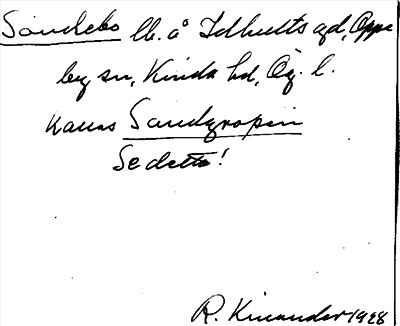 Sandebo lb. å Idhults gd, Oppe
by sn, Kinda hd, Ög. l.
kallas Sandgropen
Se detta!
R. Kinander 1928